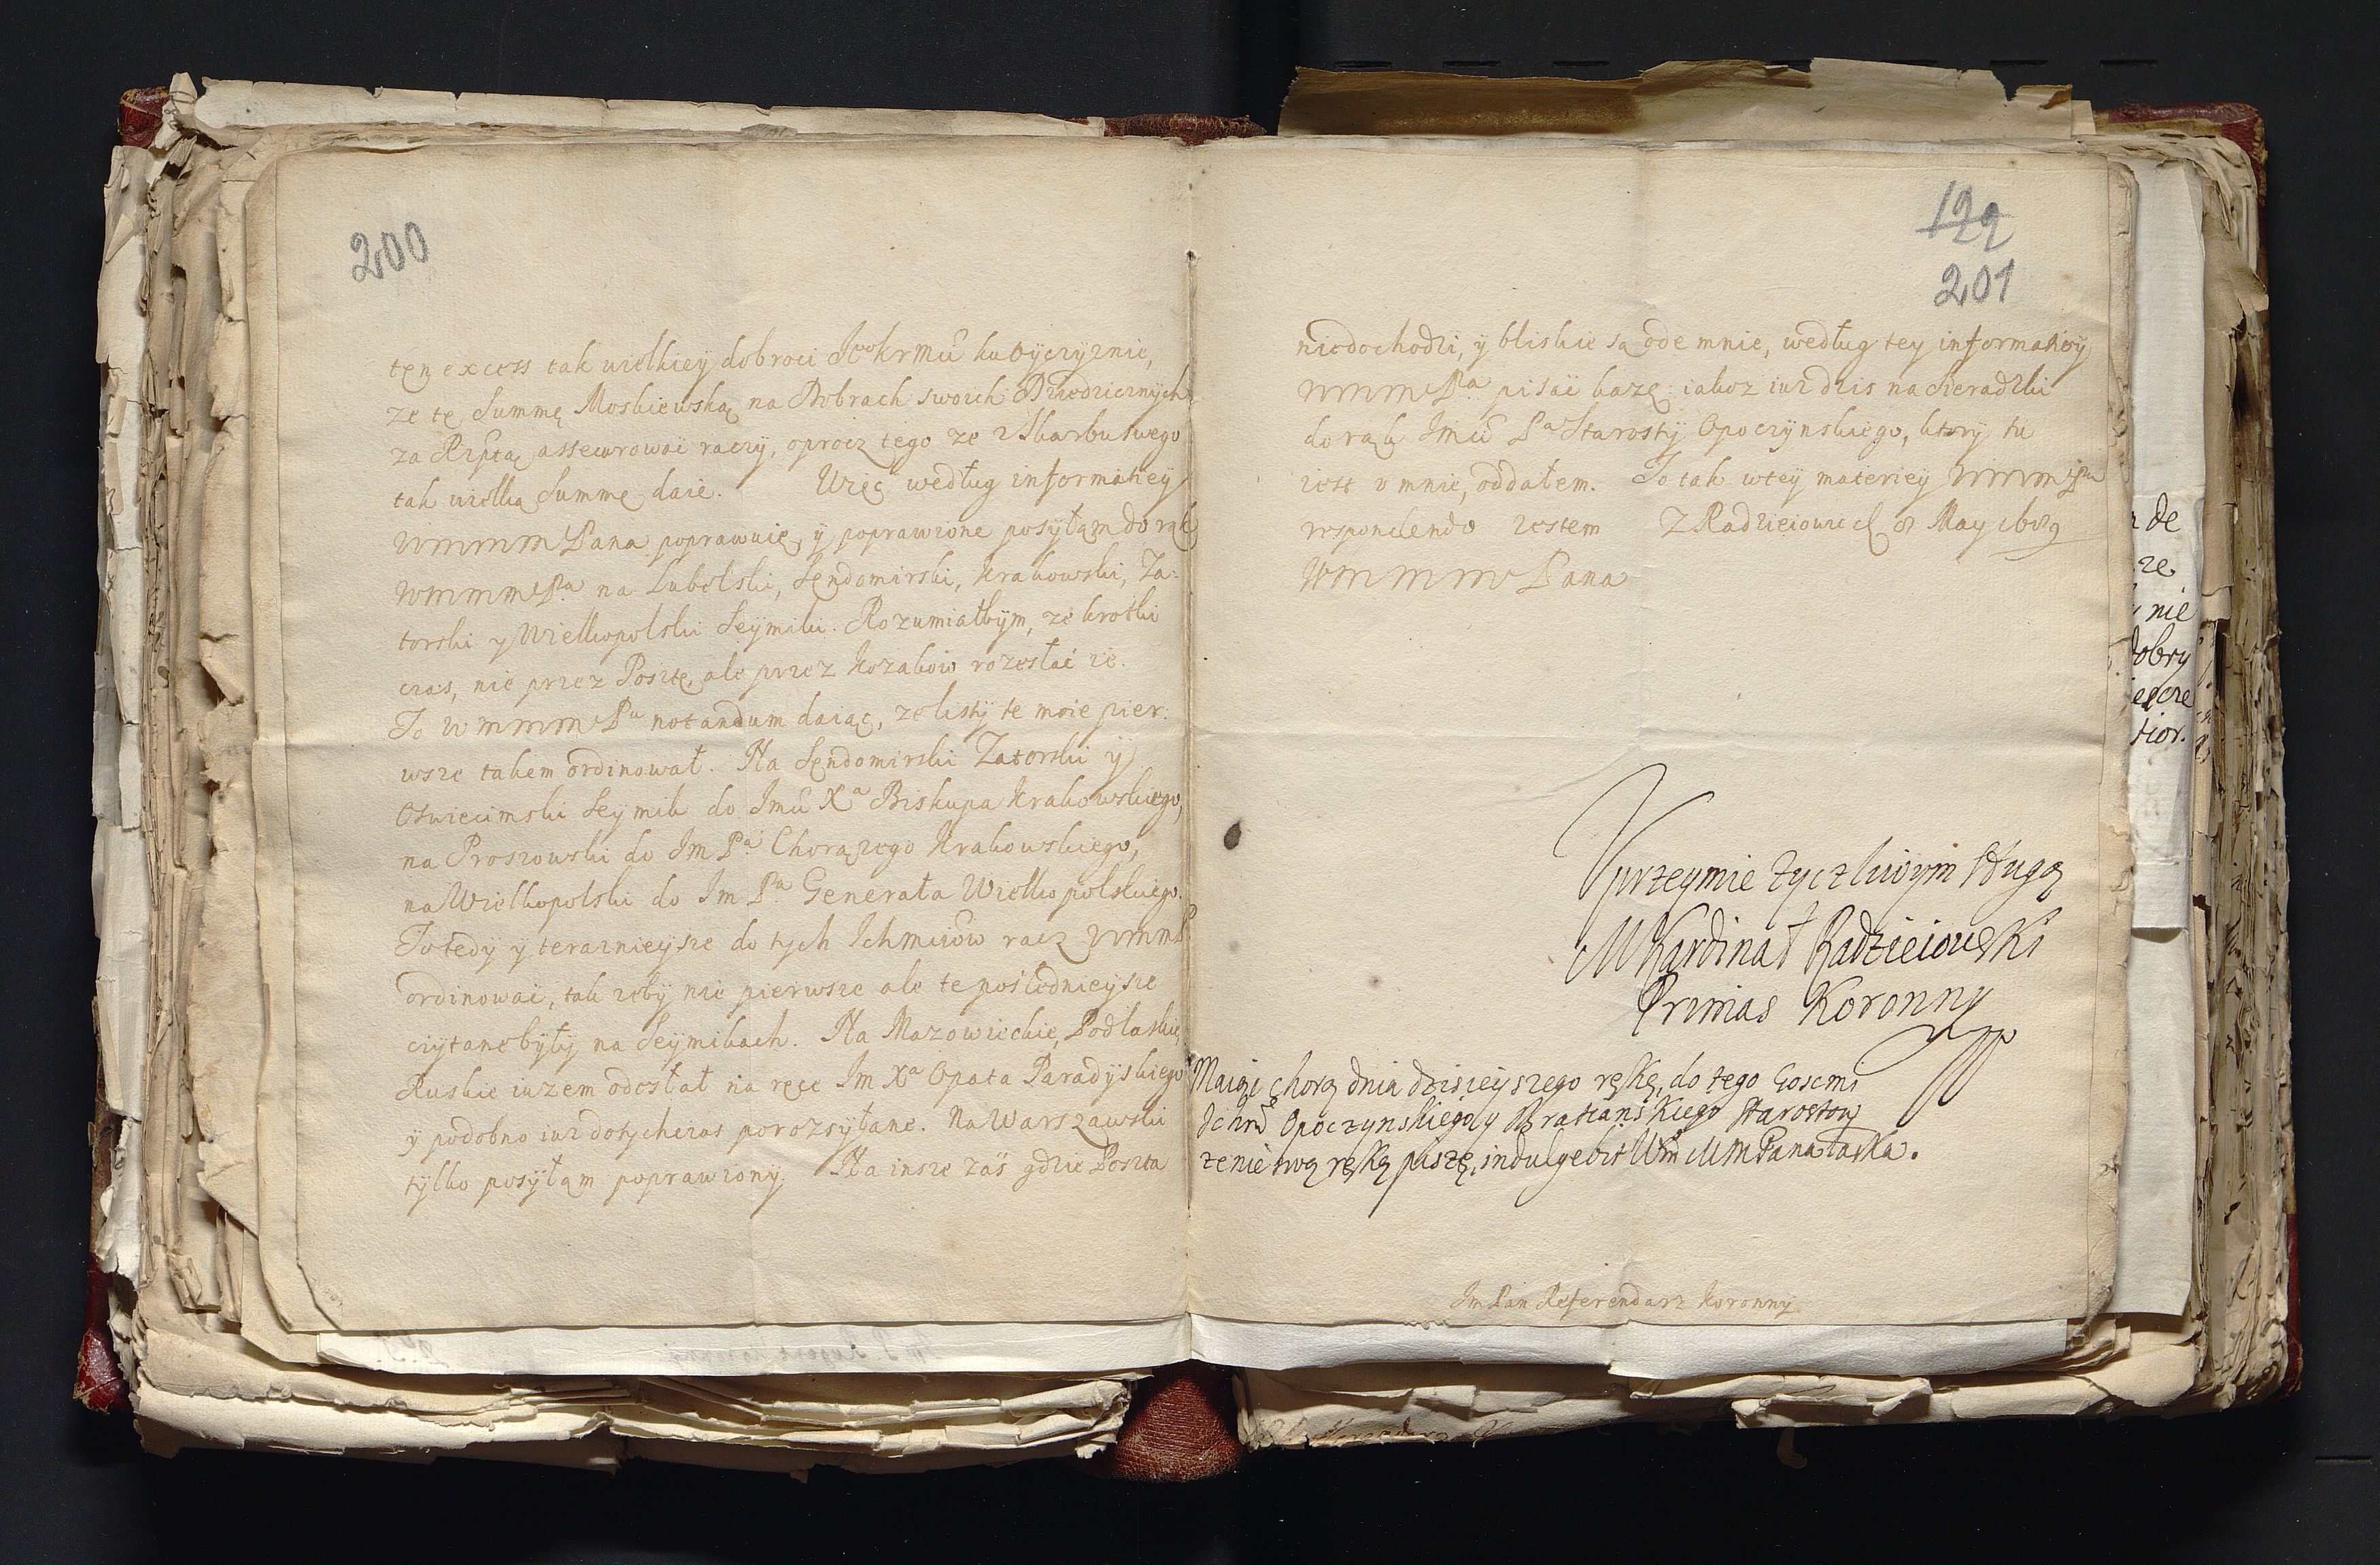 200
ten excess tak wielkiey dobroci JeoKrMći ku Oyczyznie,
ze tę Summę Moskiewską na Dobrach swoich Dziedzicznych
za Rzptą assekurować raczy, oprocz tego ze z Skarbu swego
tak wielką Summę daie. Więc według informatiey
WMMM Pana poprawuię, y poprawione posyłam do rąk
WMMM Pa na Lubelski, Sendomirski, Krakowski, Za-
torski y Wielkopolski Seymiki. Rozumiałbym, ze krotki
czas, nie przez Posztę, ale przez Kozakow rozesłać ie.
To WMMM Pu notandum daiąc, ze listy te moie pier:
wsze takem ordinował. Na Sendomirski Zatorski y
Oswiecimski Seymik do Jmći Xa Biskupa Krakowskiego,
na Proszowski do Jm Pa Chorązego Krakowskiego,
na Wielkopolski do Jm Pa Generała Wielkopolskiego.
To tedy y teraznieysze do tych Ichmciow racz WMMP
ordinować, tak zeby nie pierwsze ale te poslednieysze
czytane były na Seymikach. Na Mazowieckie, Podlaskie,
Ruskie iuzem odosłał na ręce Jm Xa Opata Paradyskiego
y podobno iuz dotychczas porozsyłane. Na Warszawski
tylko posyłam poprawiony. Na insze zaś gdzie Poszta
122
201
niedochodzi, y bliskie są ode mnie, według tey informatiey
WMMM Pa pisać kazę: iakoz iuz dzis na Sieradzki
do rąk Jmći Pa Starosty Opoczynskiego, ktory tu
iest u mnie, oddałem. To tak wtey materiey WMMM Pu
respondendo iestem Z Radzieiowic d 8 May 1689
WMMM Pana
Uprzeymie zyczliwym sługą
M Kardinał Radzieiowski
Primas Koronny
Maiąc chorą dnia dzisieyszego rękę, do tego Gosćmi
Ichm Opoczynskiego y Bratianskiego Starostow
ze nie swą ręką piszę, indulgebit Wm MM Pana łaska.
Jm Pan Referendarz Koronny